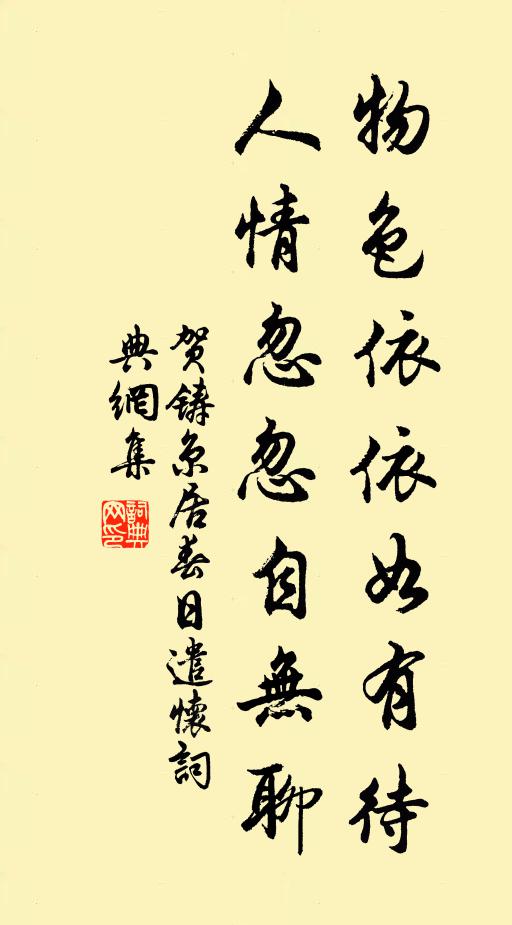 物色依依如有待
人情忽忽自無聊
賀鑄京居春日遣懷詞
典網集
詞典
网印